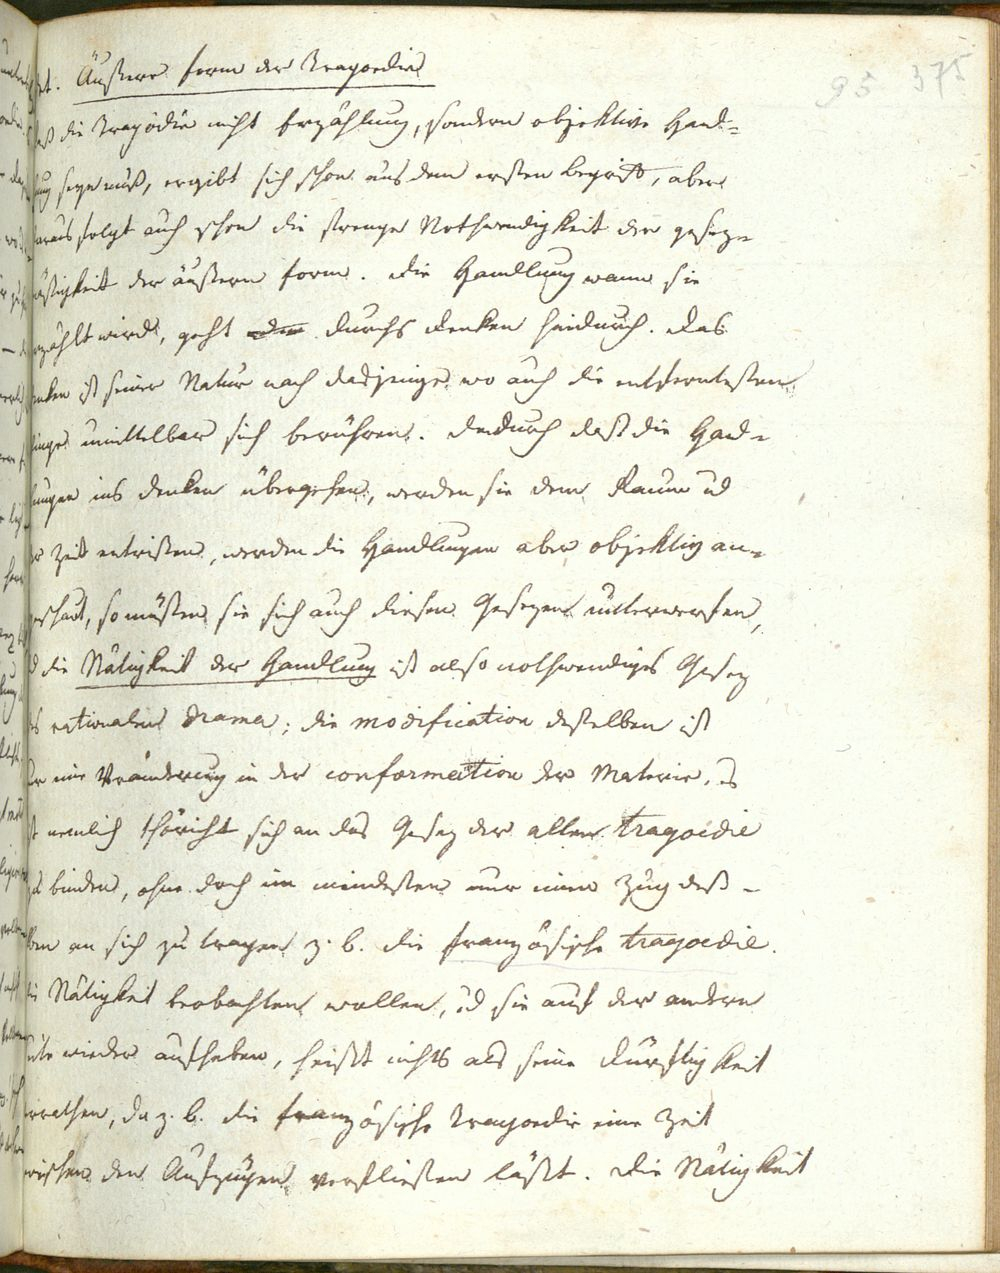 95 375
det. Äußere form der Tragoedie
daß die Tragödie nicht Erzählung, sondern objektive Hand-
lung seyn muß, ergibt sich schon aus dem ersten begriff, aber
daraus folgt auch schon die strenge Nothwendigkeit der gesez-
mäßigkeit der äußern form. die Handlung wann sie
erzählt wird, geht durchs denken hindurch. das
denken ist seiner Natur nach dasjenige wo auch die entferntesten
dinge unmittelbar sich berühren. dadurch daß die Hand-
lungen ins denken übergehen, werden sie dem Raum ud
der Zeit entrissen, werden die Handlungen aber objektiv an-
geschaut, so müßen sie sich auch diesen Gesezen unterwerfen,
ud die Stätigkeit der Handlung ist also nothwendiges Gesez
des rationalen drama; die modification deßelben ist
nur eine Veränderung in der conformation der Materie, es
ist nemlich thöricht sich an das Gesez der alten tragoedie
zu binden, ohne doch im mindesten nur einen Zug deß-
elben an sich zu tragen z. b. die französische tragoedie.
die Stätigkeit beobachten wollen, ud sie auf der andern
Seite wieder aufheben, heißt nichts als seine dürftigkeit
verrathen, da z. b. die französische Tragoedie eine Zeit
zwischen den Aufzügen verfließen läßt. die Stätigkeit